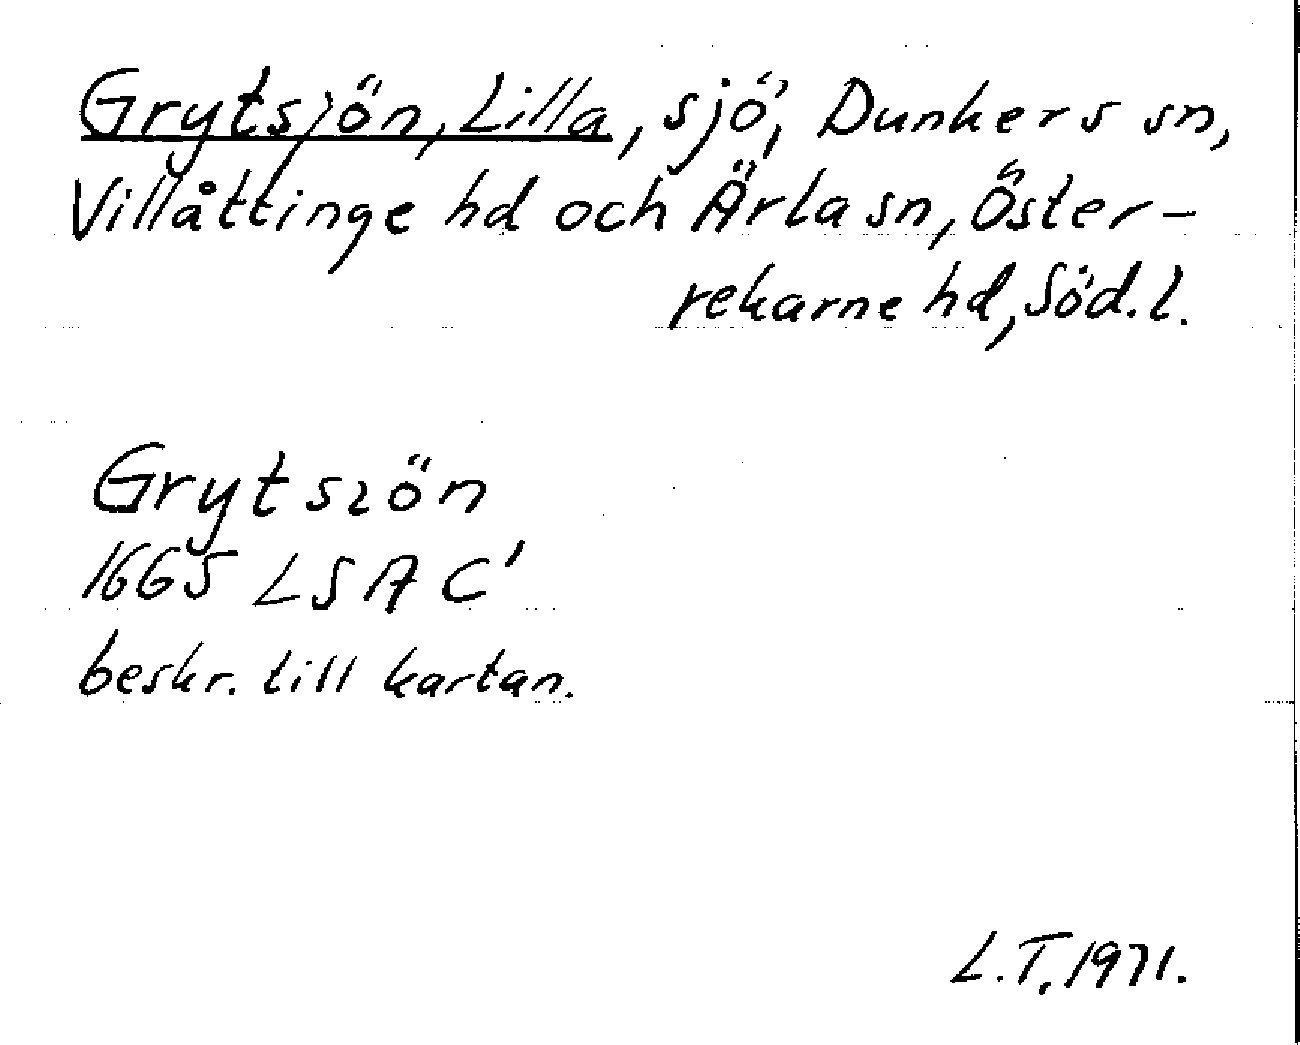 Grytsjön, Lilla, sjö, Dunkers sn,
Villåttinge hd och Ärla sn, Öster-
rekarne hd, Söd. l.
Grytsiön
1665 LSA C'
beskr. till kartan.
L.T. 1971.